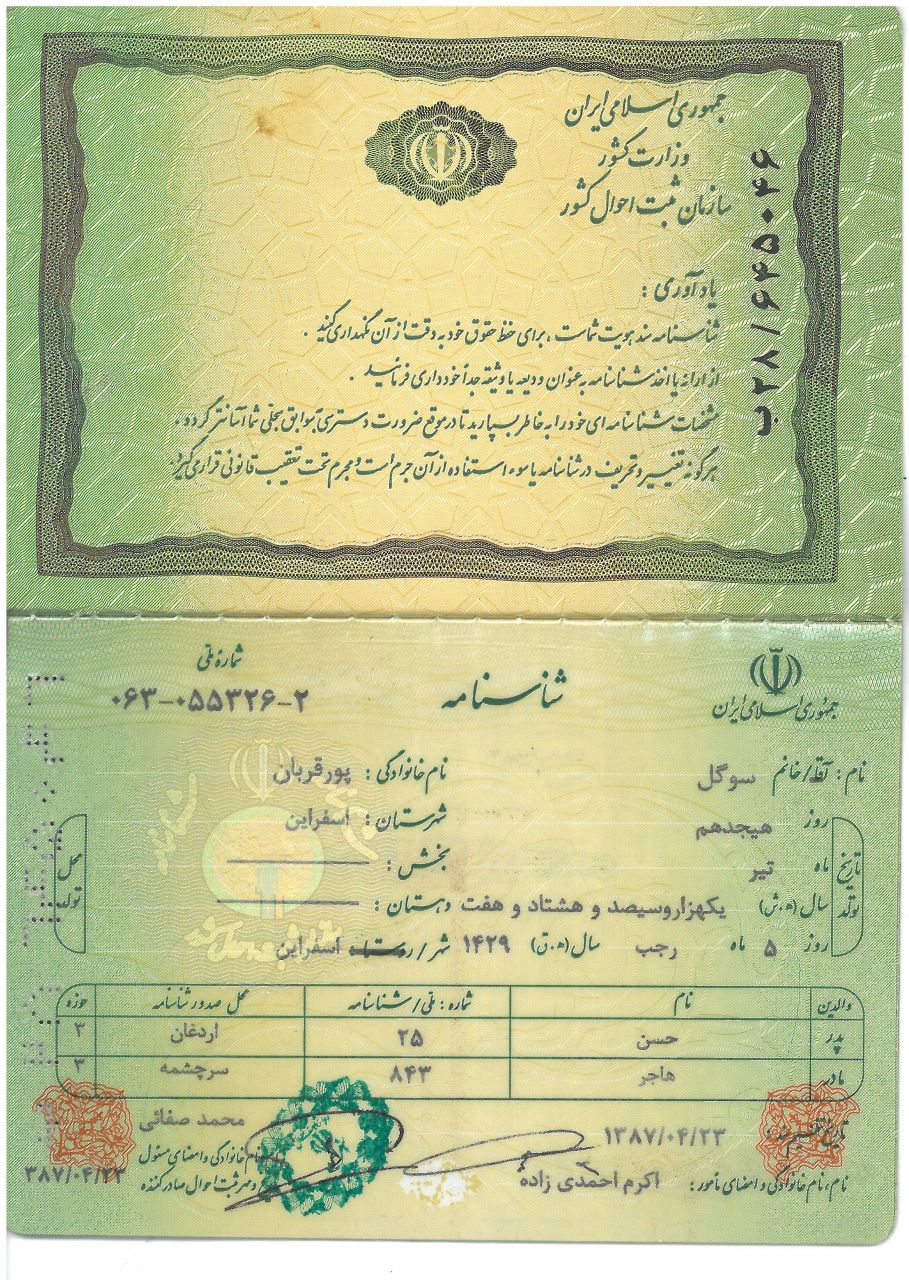 جمهوری اسلامی ایران
وزارت کشور
سازمان ثبت احوال کشور
ب۲۸/۶۴۵۰۴۶
یادآوری :
شناسنامه سند هویت شماست ، برای حفظ حقوق خود به دقت از آن نگهداری کنید .
از ارائه یا اخذ شناسنامه به عنوان ودیعه یا وثیقه جداً خودداری فرمائید .
مشخصات شناسنامه ای خود را به خاطر بسپارید تا در موقع ضرورت دسترسی به سوابق سجلی شما آسانتر گردد .
هرگونه تغییر و تحریف در شناسنامه یا سوء استفاده از آن جرم است و مجرم تحت تعقیب قانونی قرار می گیرد.
جمهوری اسلامی ایران
شناسنامه
شماره ملی
۰۶۳-۰۵۵۳۲۶-۲
نام : آقا/خانم سوگل نام خانوادگی : پورقربان
تاریخ تولد
روز هیجدهم شهرستان : اسفراین
ماه تیر بخش :
سال (ه.ش) یکهزاروسیصد و هشتاد و هفت دهستان :
روز ۵ ماه رجب سال (ه.ق) ۱۴۲۹ شهر/روستا اسفراین
محل تولد
والدین نام شماره : ملی/شناسنامه محل صدور شناسنامه حوزه
پدر حسن ۲۵ اردغان ۳
مادر هاجر ۸۴۳ سرچشمه ۳
تاریخ تنظیم سند ۱۳۸۷/۰۴/۲۳ محمد صفائی
نام، نام خانوادگی و امضای مأمور : اکرم احمدی زاده
نام خانوادگی و امضای مسئول
و مهر ثبت احوال صادرکننده
۳۸۷/۰۴/۲۳